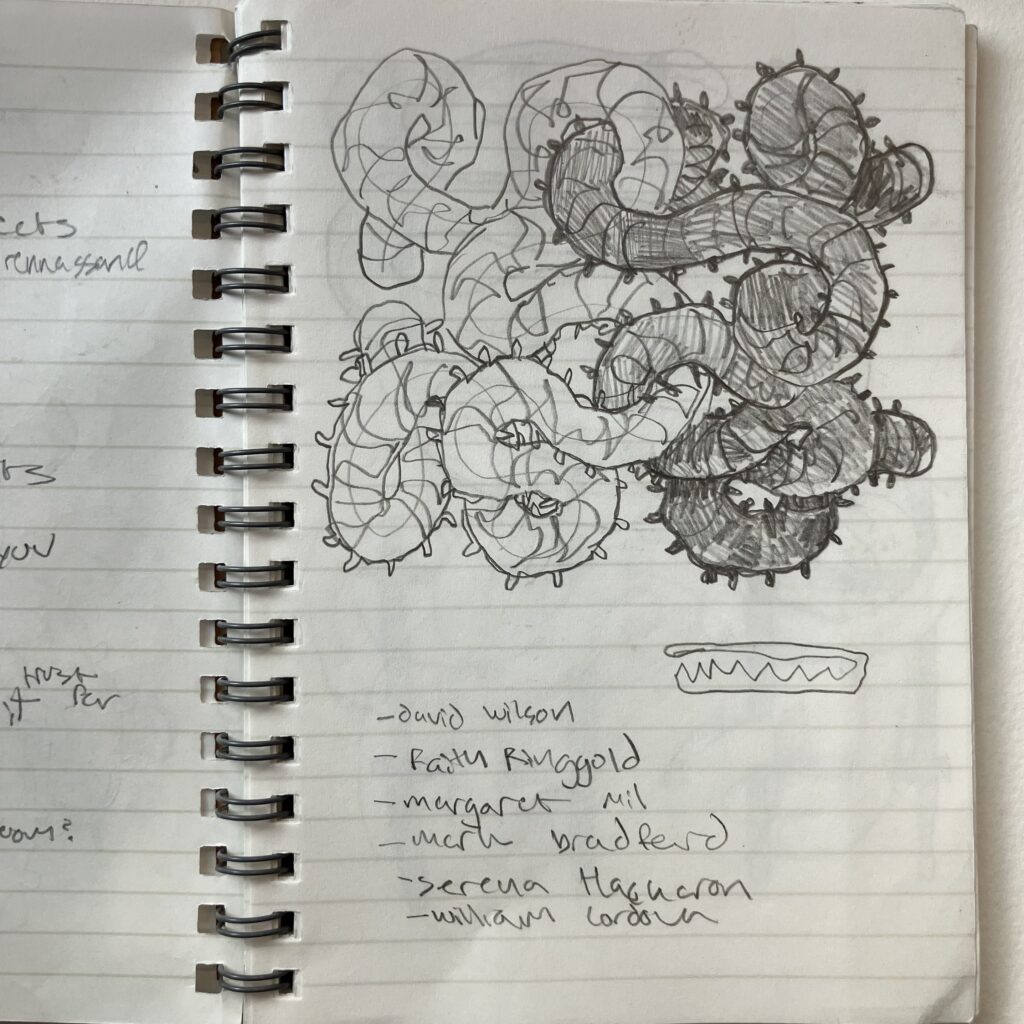 ects
rennassance
ts
you
trust
it for
- david wilson
- Faith Ringgold
- margaret Mil
- mark bradford
- serena
- william cordova